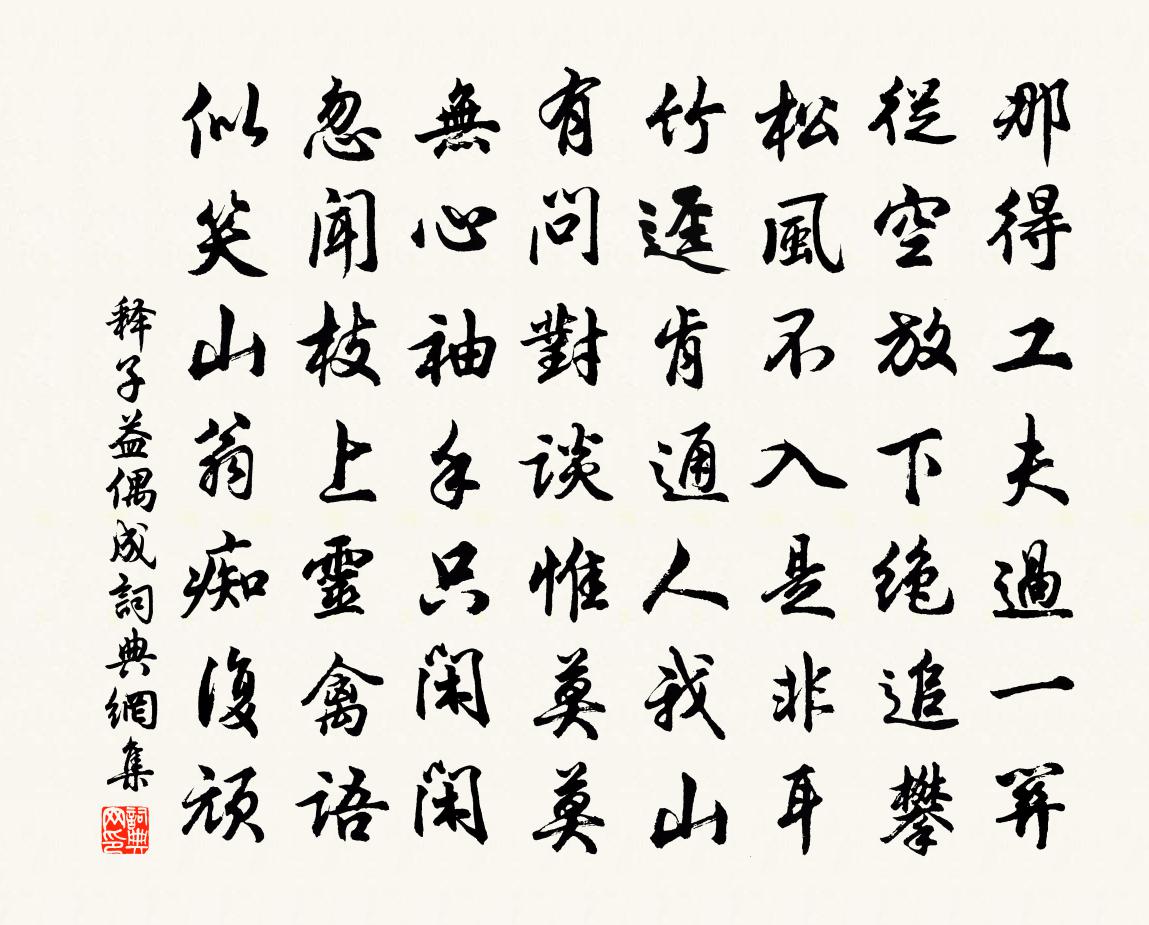 那得工夫過一關
從空放下絶追攀
松風不入是非耳
竹逕肯通人我山
有問對談惟莫莫
無心袖手只閑閑
忽聞枝上靈禽語
似笑山翁痴復頑
释子益偶成詞典網集
詞典网印